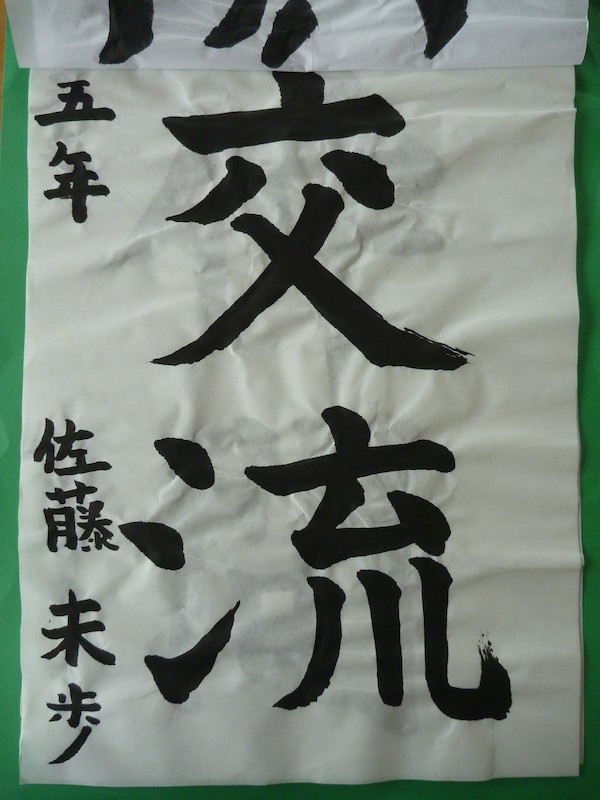 交流
五年 佐藤未歩